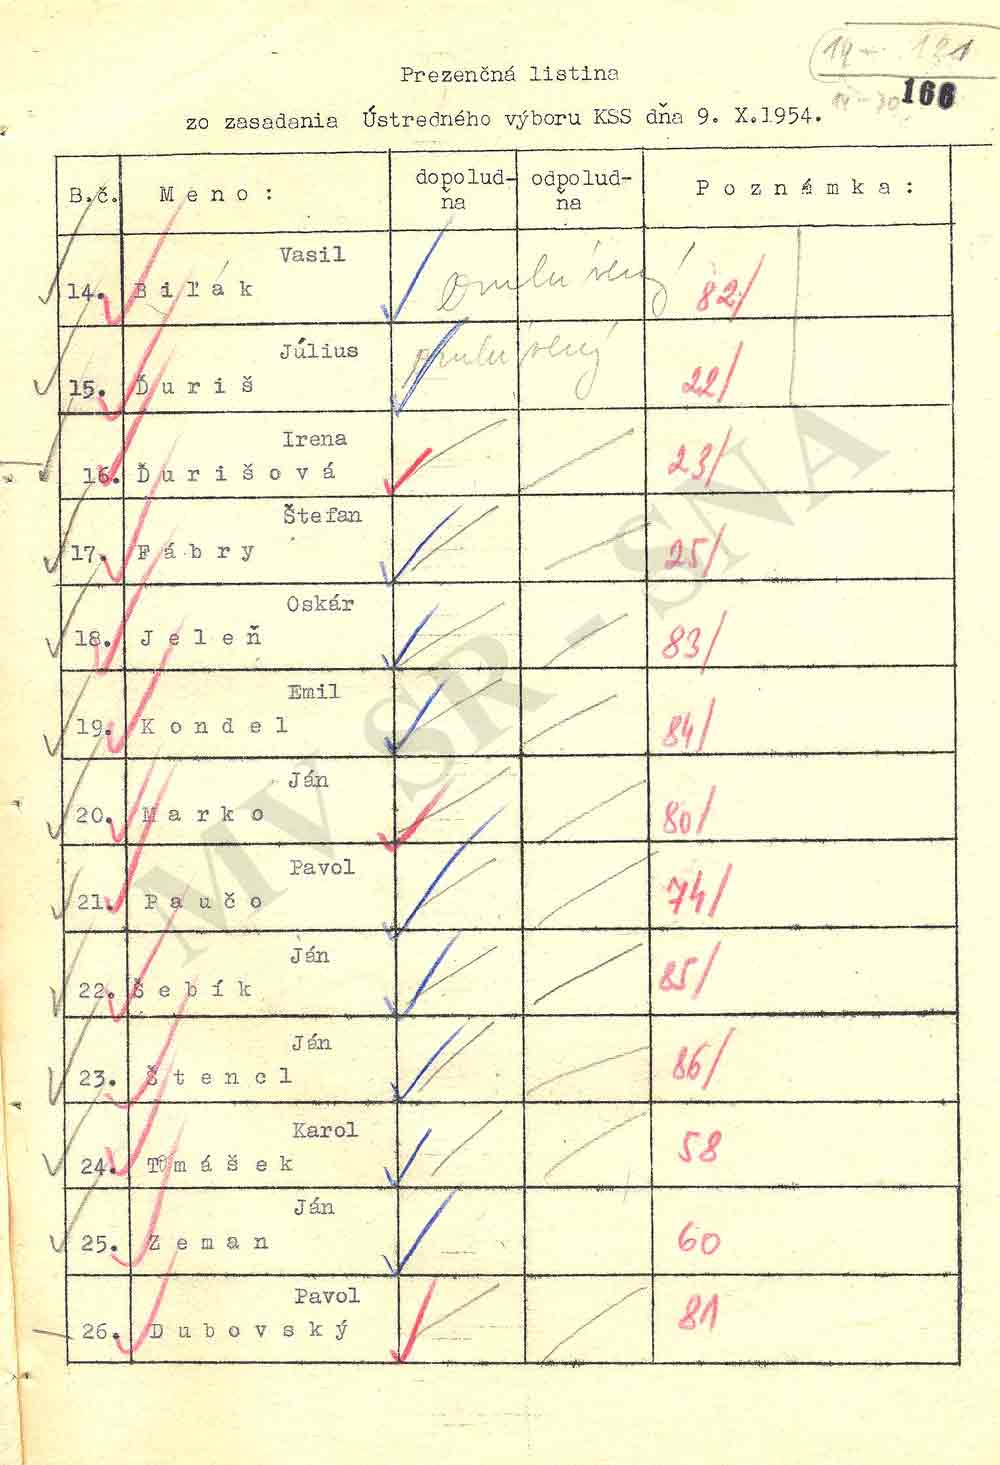 19 - 131
14-30 166
Prezenčná listina
zo zasadania Ústredného výboru KSS dňa 9. X.1954.
B.č. Meno: dopolud-ňa odpolud-ňa Poznámka:
Vasil
14. Biľák Omluvený 82/
Július
15. Ďuriš omluvený 22/
Irena
16. Ďurišová 23/
Štefan
17. Fábry 25/
Oskár
18. Jeleň 83/
Emil
19. Kondel 84/
Ján
20. Marko 80/
Pavol
21. Paučo 74/
Ján
22. Šebík 85/
Ján
23. Štencl 86/
Karol
24. Tomášek 58
Ján
25. Zeman 60
Pavol
26. Dubovský 81
MV SR - SNA